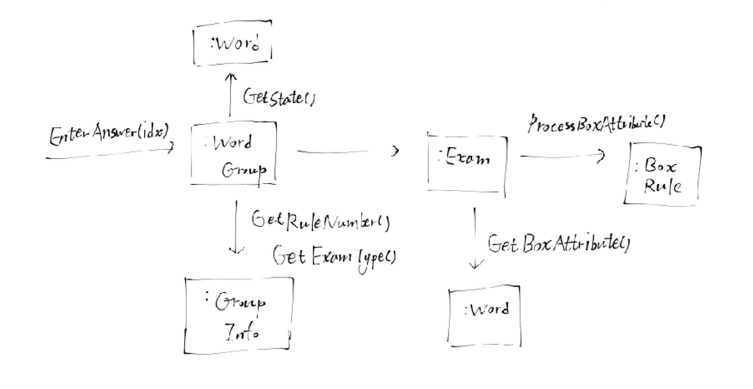 :Word
GetState()
EnterAnswer(idx)
:Word
Group
:Exam
ProcessBoxAttribute()
:Box
Rule
GetRuleNumber()
GetExamType()
GetBoxAttribute()
:Group
Info
:Word